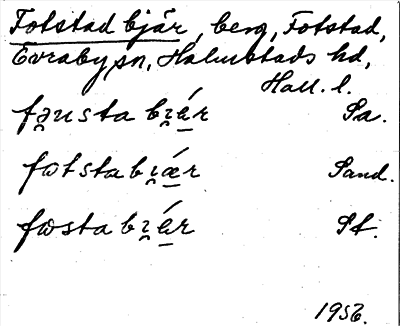 Fotstad bjär, berg, Fotstad,
Evraby sn, Halmstads hd,
Hall. l.
fə̯ustabi̯ér Sa.
fotstabi̯ǽr Sand.
fostabi̯ér St.
1956.